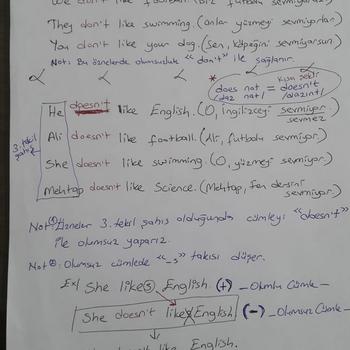 We don't like football (Biz futbolu sevmiyoruz)
They don't like swimming. (Onlar yüzmeyi sevmiyorlar)
You don't like your dog. (Sen, köpeğini sevmiyorsun)
Not: Bu öznelerde olumsuzluk "don't" ile sağlanır.
* does not = doesn't
kısa şekli
(daz nat) (dazınt)
3. tekil şahıs
He doesn't like English. (O, İngilizceyi sevmiyor.
sevmez
Ali doesn't like football. (Ali, futbolu sevmiyor).
She doesn't like swimming. (O, yüzmeyi sevmiyor)
Mehtap doesn't like Science. (Mehtap, fen dersini sevmiyor)
Not①: Özneler 3. tekil şahıs olduğunda cümleyi "doesn't"
ile olumsuz yaparız.
Not②: Olumsuz cümlede "-s" takısı düşer.
Ex/ She likes English. (+) - Olumlu Cümle -
She doesn't likes English (-) - Olumsuz Cümle -
like English.